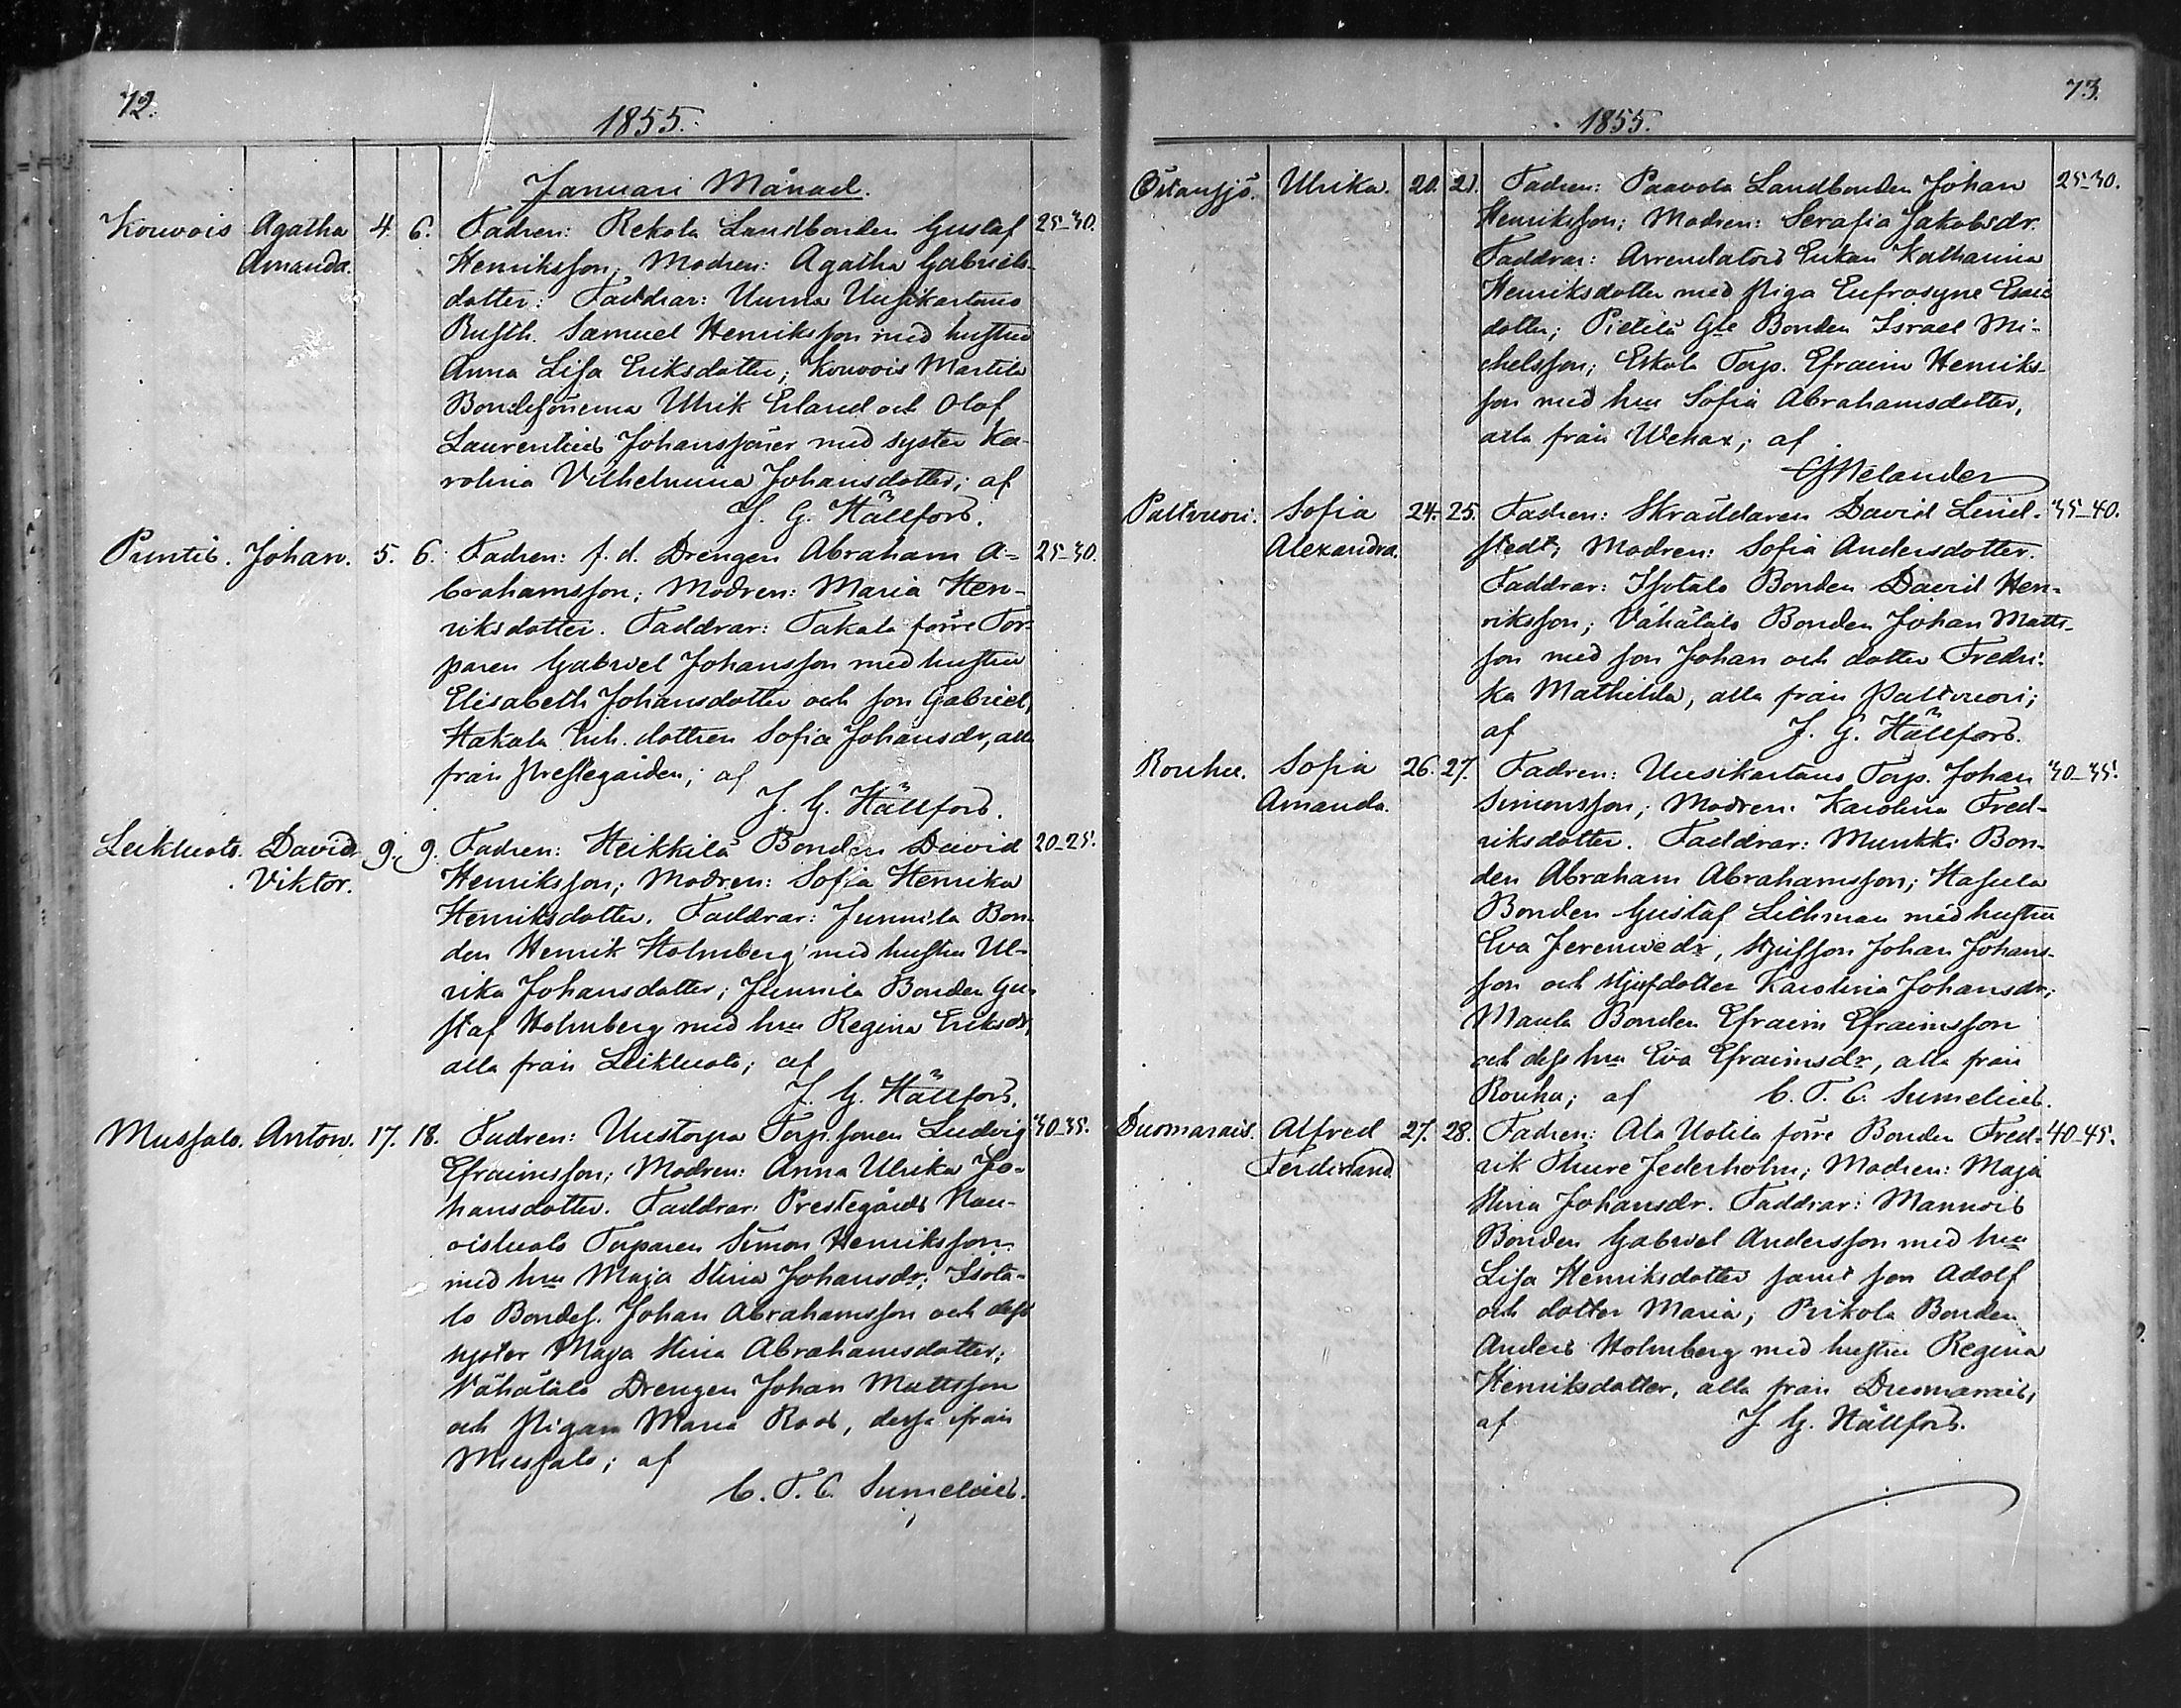 72.
1855.
Januari Månad.
Kouvois Agatha 4. 6. Fadren: Rekola Landbonden Gustaf 25-30.
Amanda. Henriksson; Modren: Agatha Gabriels-
dotter: Faddrar: Uusikartano
Rusth. Samuel Henriksson med hustru
Anna Lisa Eriksdotter; Kouvois Martila
Bondesönerna Ulrik Erland och Olof
Laurentius Johanssöner med syster Ka-
rolina Vilhelmina Johansdotter; af
J. G. Hällfors.
Puntis. Johan. 5. 6. Fadren: f. d. Drengen Abraham A- 25-30.
brahamsson; Modren: Maria Hen-
riksdotter. Faddrar: Takala förre Tor-
paren Gabriel Johansson med hustru
Elisabeth Johansdotter och son Gabriel,
Hakala Inh. dottren Sofia Johansdr, alla
från Prestegården; af
J. G. Hällfors.
Leikluoto. David 9. 9. Fadren: Heikkilä Bonden David 20-25.
Viktor. Henriksson; Modren: Sofia Henrika
Henriksdotter. Faddrar: Junnila Bon-
den Henrik Holmberg med hustru Ul-
rika Johansdotter; Junnila Bonden Gu-
staf Holmberg med hru Regina Eriksdr,
alla från Leikluoto; af
J. G. Hällfors.
Mussalo. Anton. 17. 18. Fadren: Uustorpa Torp.sonen Ludvig 30-35.
Efraimsson; Modren: Anna Ulrika Jo-
hansdotter. Faddrar: Prestegårds
Torparen Simon Henriksson
med hru Maja Stina Johansdr; Isota-
lo Bondes. Johan Abrahamsson och dess
syster Maja Stina Abrahamsdotter;
Vähätalo Drengen Johan Mattsson
och Pigan Maria Roos, dessa ifrån
Mussalo; af
C. F. C. Sumelius.
73.
1855.
Östansjö. Ulrika. 20. 21. Fadren: Paavola Landbonden Johan 25-30.
Henriksson; Modren: Serafia Jakobsdr.
Faddrar: Arrendators Enkan Katharina
Henriksdotter med Piga Eufrosyne Esais
dotter; Pietilä Gle Bonden Israel Mi-
chelsson; Eskola Torp. Efraim Henriks-
son med hru Sofia Abrahamsdotter,
alla från Wehax; af
Melander
Paltvuori. Sofia 24. 25. Fadren: Skräddaren David Lind- 35-40.
Alexandra. stedt; Modren: Sofia Andersdotter.
Faddrar: Isotalo Bonden David Hen-
riksson; Vähätalo Bonden Johan Matts-
son med son Johan och dotter Fredri-
ka Mathilda, alla från Paltvuori;
af J. G. Hällfors.
Rouhu. Sofia 26. 27. Fadren: Uusikartano Torp. Johan 30-35.
Amanda. Simonsson; Modren: Karolina Fred-
riksdotter. Faddrar: Munkki Bon-
den Abraham Abrahamsson; Hasula
Bonden Gustaf Lichman med hustru
Eva Jeremiædr, Stjufson Johan Johans-
son och stjufdotter Karolina Johansdr;
Maula Bonden Efraim Efraimsson
och dess hru Eva Efraimsdr, alla från
Rouhu; af C. F. C. Sumelius.
Duomarais. Alfred 27. 28. Fadren: Ala Uotila förre Bonden Fred- 40-45.
Ferdinand. rik Thure Jederholm; Modren: Maja
Stina Johansdr. Faddrar: Mannois
Bonden Gabriel Andersson med hru
Lisa Henriksdotter samt son Adolf
och dotter Maria; Rikola Bonden
Anders Holmberg med hustru Regina
Henriksdotter, alla från Duomarais,
af J. G. Hällfors.